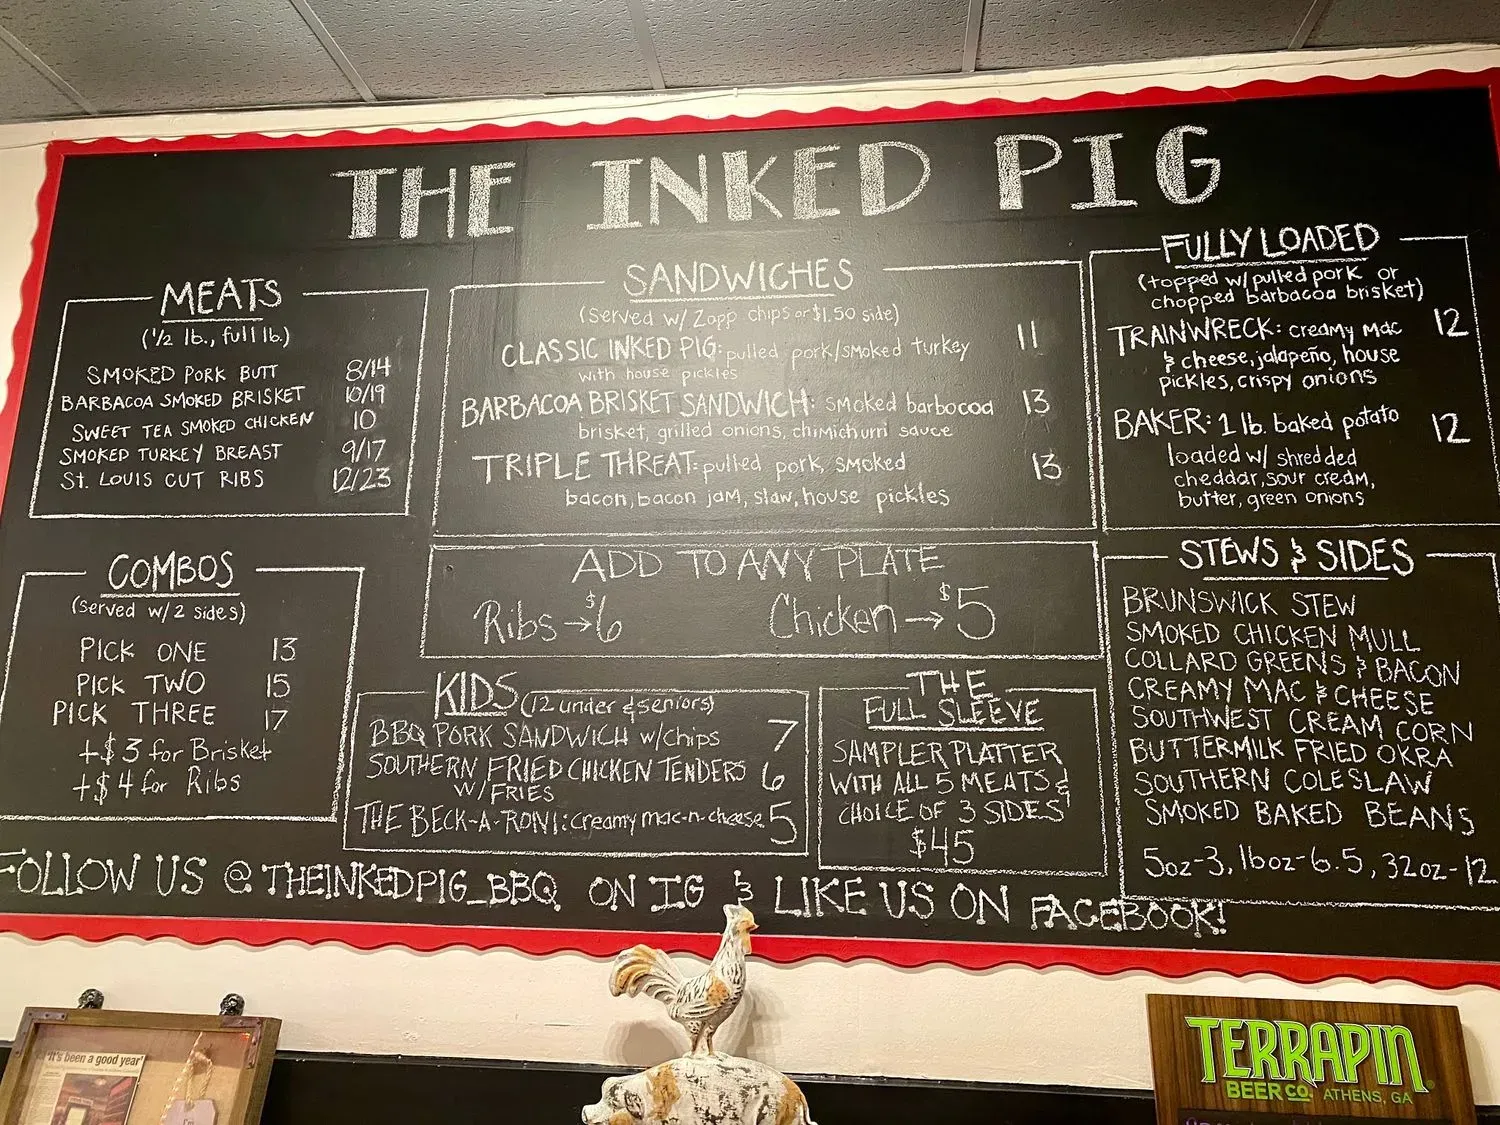 THE INKED PIG
MEATS
(1/2 lb., full lb.)
SMOKED PORK BUTT 8/14
BARBACOA SMOKED BRISKET 10/19
SWEET TEA SMOKED CHICKEN 10
SMOKED TURKEY BREAST 9/17
St. LOUIS CUT RIBS 12/23
COMBOS
(served w/ 2 sides)
PICK ONE 13
PICK TWO 15
PICK THREE 17
+$3 for Brisket
+$4 for Ribs
SANDWICHES
(served w/ Zapp chips or $1.50 side)
CLASSIC INKED PIG: pulled pork/smoked turkey 11
with house pickles
BARBACOA BRISKET SANDWICH: smoked barbocoa 13
brisket, grilled onions, chimichurri sauce
TRIPLE THREAT: pulled pork, smoked 13
bacon, bacon jam, slaw, house pickles
ADD TO ANY PLATE
Ribs → $6 Chicken → $5
KIDS (12 under & seniors)
BBQ PORK SANDWICH w/chips 7
SOUTHERN FRIED CHICKEN TENDERS 6
w/FRIES
THE BECK-A-RONI: creamy mac-n-cheese 5
THE
FULL SLEEVE
SAMPLER PLATTER
WITH ALL 5 MEATS &
CHOICE OF 3 SIDES
$45
FULLY LOADED
(topped w/ pulled pork or
chopped barbacoa brisket)
TRAINWRECK: creamy mac 12
& cheese, jalapeño, house
pickles, crispy onions
BAKER: 1 lb. baked potato 12
loaded w/ shredded
cheddar, sour cream,
butter, green onions
STEWS & SIDES
BRUNSWICK STEW
SMOKED CHICKEN MULL
COLLARD GREENS & BACON
CREAMY MAC & CHEESE
SOUTHWEST CREAM CORN
BUTTERMILK FRIED OKRA
SOUTHERN COLESLAW
SMOKED BAKED BEANS
5oz-3, 16oz-6.5, 32oz-12
FOLLOW US @THEINKEDPIG_BBQ ON IG & LIKE US ON FACEBOOK!
'It's been a good year'
TERRAPIN
BEER CO. ATHENS, GA